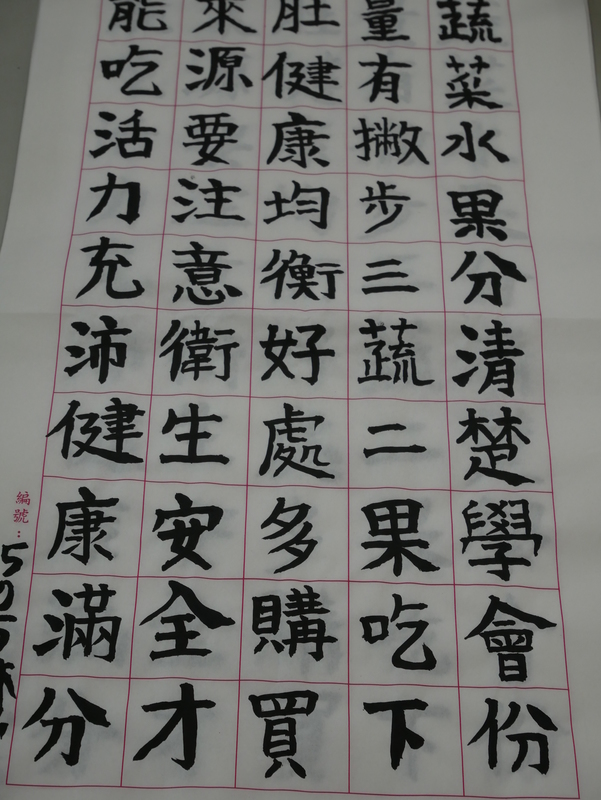 蔬菜水果分清楚學會份
量有撇步三蔬二果吃下
肚健康均衡好處多購買
來源要注意衛生安全才
能吃活力充沛健康滿分
編號：